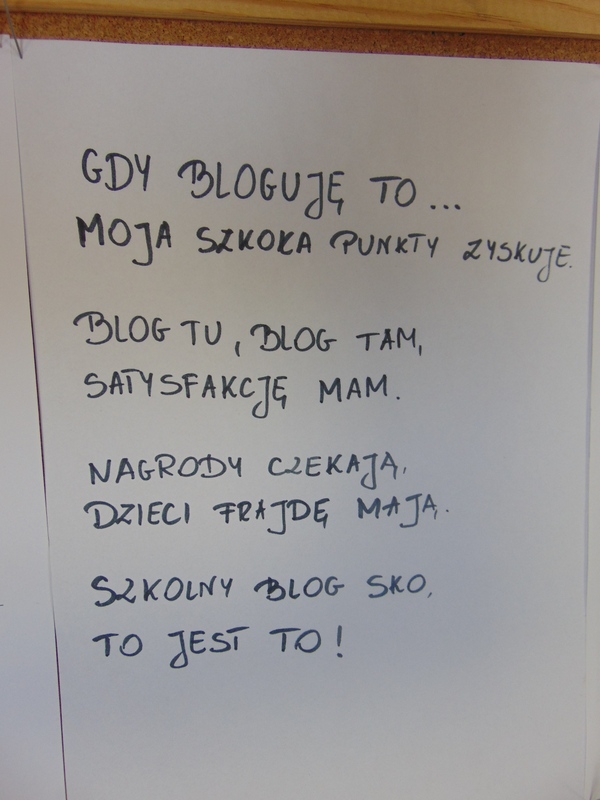 GDY BLOGUJĘ TO...
MOJA SZKOŁA PUNKTY ZYSKUJE.
BLOG TU, BLOG TAM,
SATYSFAKCJĘ MAM.
NAGRODY CZEKAJĄ,
DZIECI FRAJDĘ MAJĄ.
SZKOLNY BLOG SKO,
TO JEST TO!